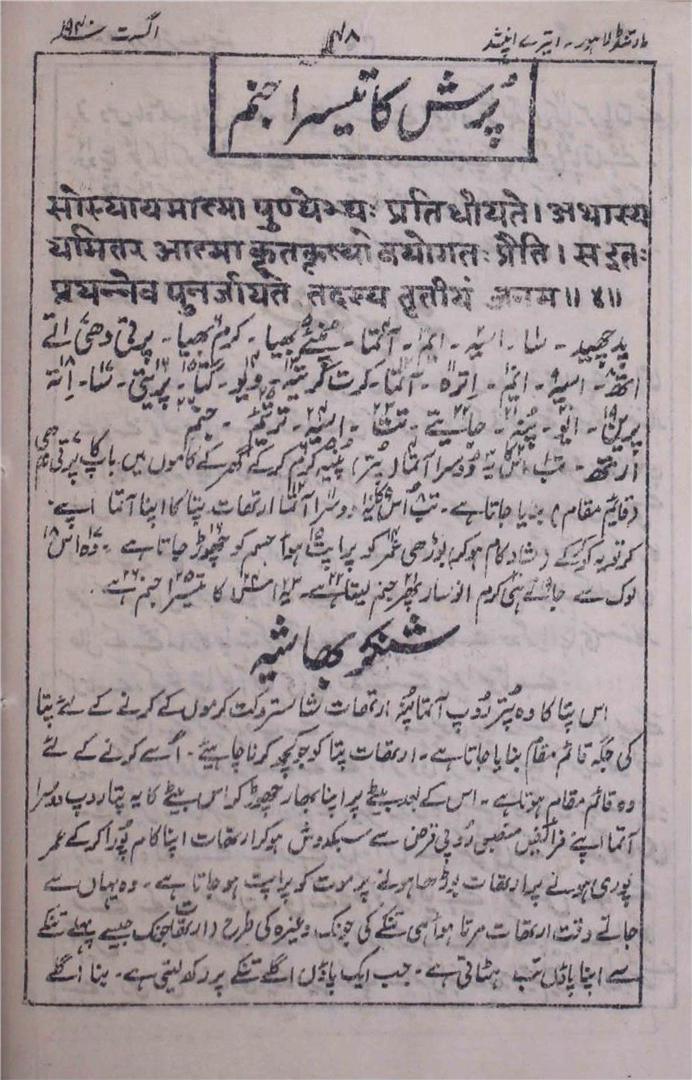 مارتنڈ لاہور ۔ ایترے اپنشد ۴۸ اگست ۱۹۴۰
پُرش کا تیسرا جنم
सोस्यायमात्मा पुण्येभ्यः प्रतिधीयते। अथास्य
यमितर आत्मा कृतकृत्यो वयोगतः प्रैति। स इतः
प्रयन्नेव पुनर्जायते तदस्य तृतीयं जनम॥ ४॥
پدچھید ۔ سا ۔ اسیہ ۔ ایم ۔ آتما ۔ پُنئے بھیا ۔ کرم بھیا ۔ پرتی دھی اتے
اتھ ۔ اسیہ ۔ ایم ۔ اِترہ ۔ آتما ۔ کرت کرتیہ ۔ ویو ۔ گتا ۔ پریتی ۔ سا ۔ اِتہ
پرین ۔ ایو ۔ پُنہ ۔ جائیتے ۔ تت ۔ اسیہ ۔ ترتیم ۔ جنم
ارتھ ۔ تب اس کا یہ دوسرا آتما (پتر) پُنیہ کرم کرکے گھر کے کاموں میں باپ کا پرتی
(قایم مقام) بنایا جاتا ہے ۔ تب اُس کا یہ دوسرا آتما ارتھات پتا کا اپنا آتما اپنے
کرتویہ کو کرکے (شاد کام ہوکر) بوڑھی عمر کو پراپت ہوا جسم کو چھوڑ جاتا ہے ۔ وہ اس
لوک سے جاتے ہی کرم انوسار پھر جنم لیتا ہے ۔ یہ اس کا تیسرا جنم ہے
شنکر بھاشیہ
اس پتا کا وہ پُتر رُوپ آتما پُنیہ ارتھات شاستروکت کرموں کے کرنے کے لئے پتا
کی جگہ قائم مقام بنایا جاتا ہے ۔ ارتھات پتا کو جو کچھ کرنا چاہیئے ۔ اُسے کرنے کے لئے
وہ قائم مقام ہوتا ہے ۔ اس کے بعد بیٹے پر اپنا بھار چھوڑ کر اس بیٹے کا یہ پتا روپ دوسرا
آتما اپنے فرائیض منصبی رُوپی قرض سے سبکدوش ہوکر ارتھات اپنا کام پُورا کرکے عمر
پوری ہونے پر ارتھات بوڑھا ہونے پر موت کو پراپت ہو جاتا ہے ۔ وہ یہاں سے
جاتے وقت ارتھات مرتا ہوا ہی تنکے کی جونک وغیرہ کی طرح (ارتھات جونک جیسے پہلے تنکے
سے اپنا پاؤں تب ہٹاتی ہے ۔ جب ایک پاؤں اگلے تنکے پر رکھ لیتی ہے ۔ بنا اگلے